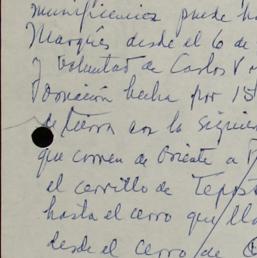 munificencia puede ha
Marqués desde el 6 de
y voluntad de Carlos V
Donación hecha por 15
de tierra con la siguien
que corren de Oriente a P
el cerrillo de Tepost
hasta el cerro que lla
desde el cerro de